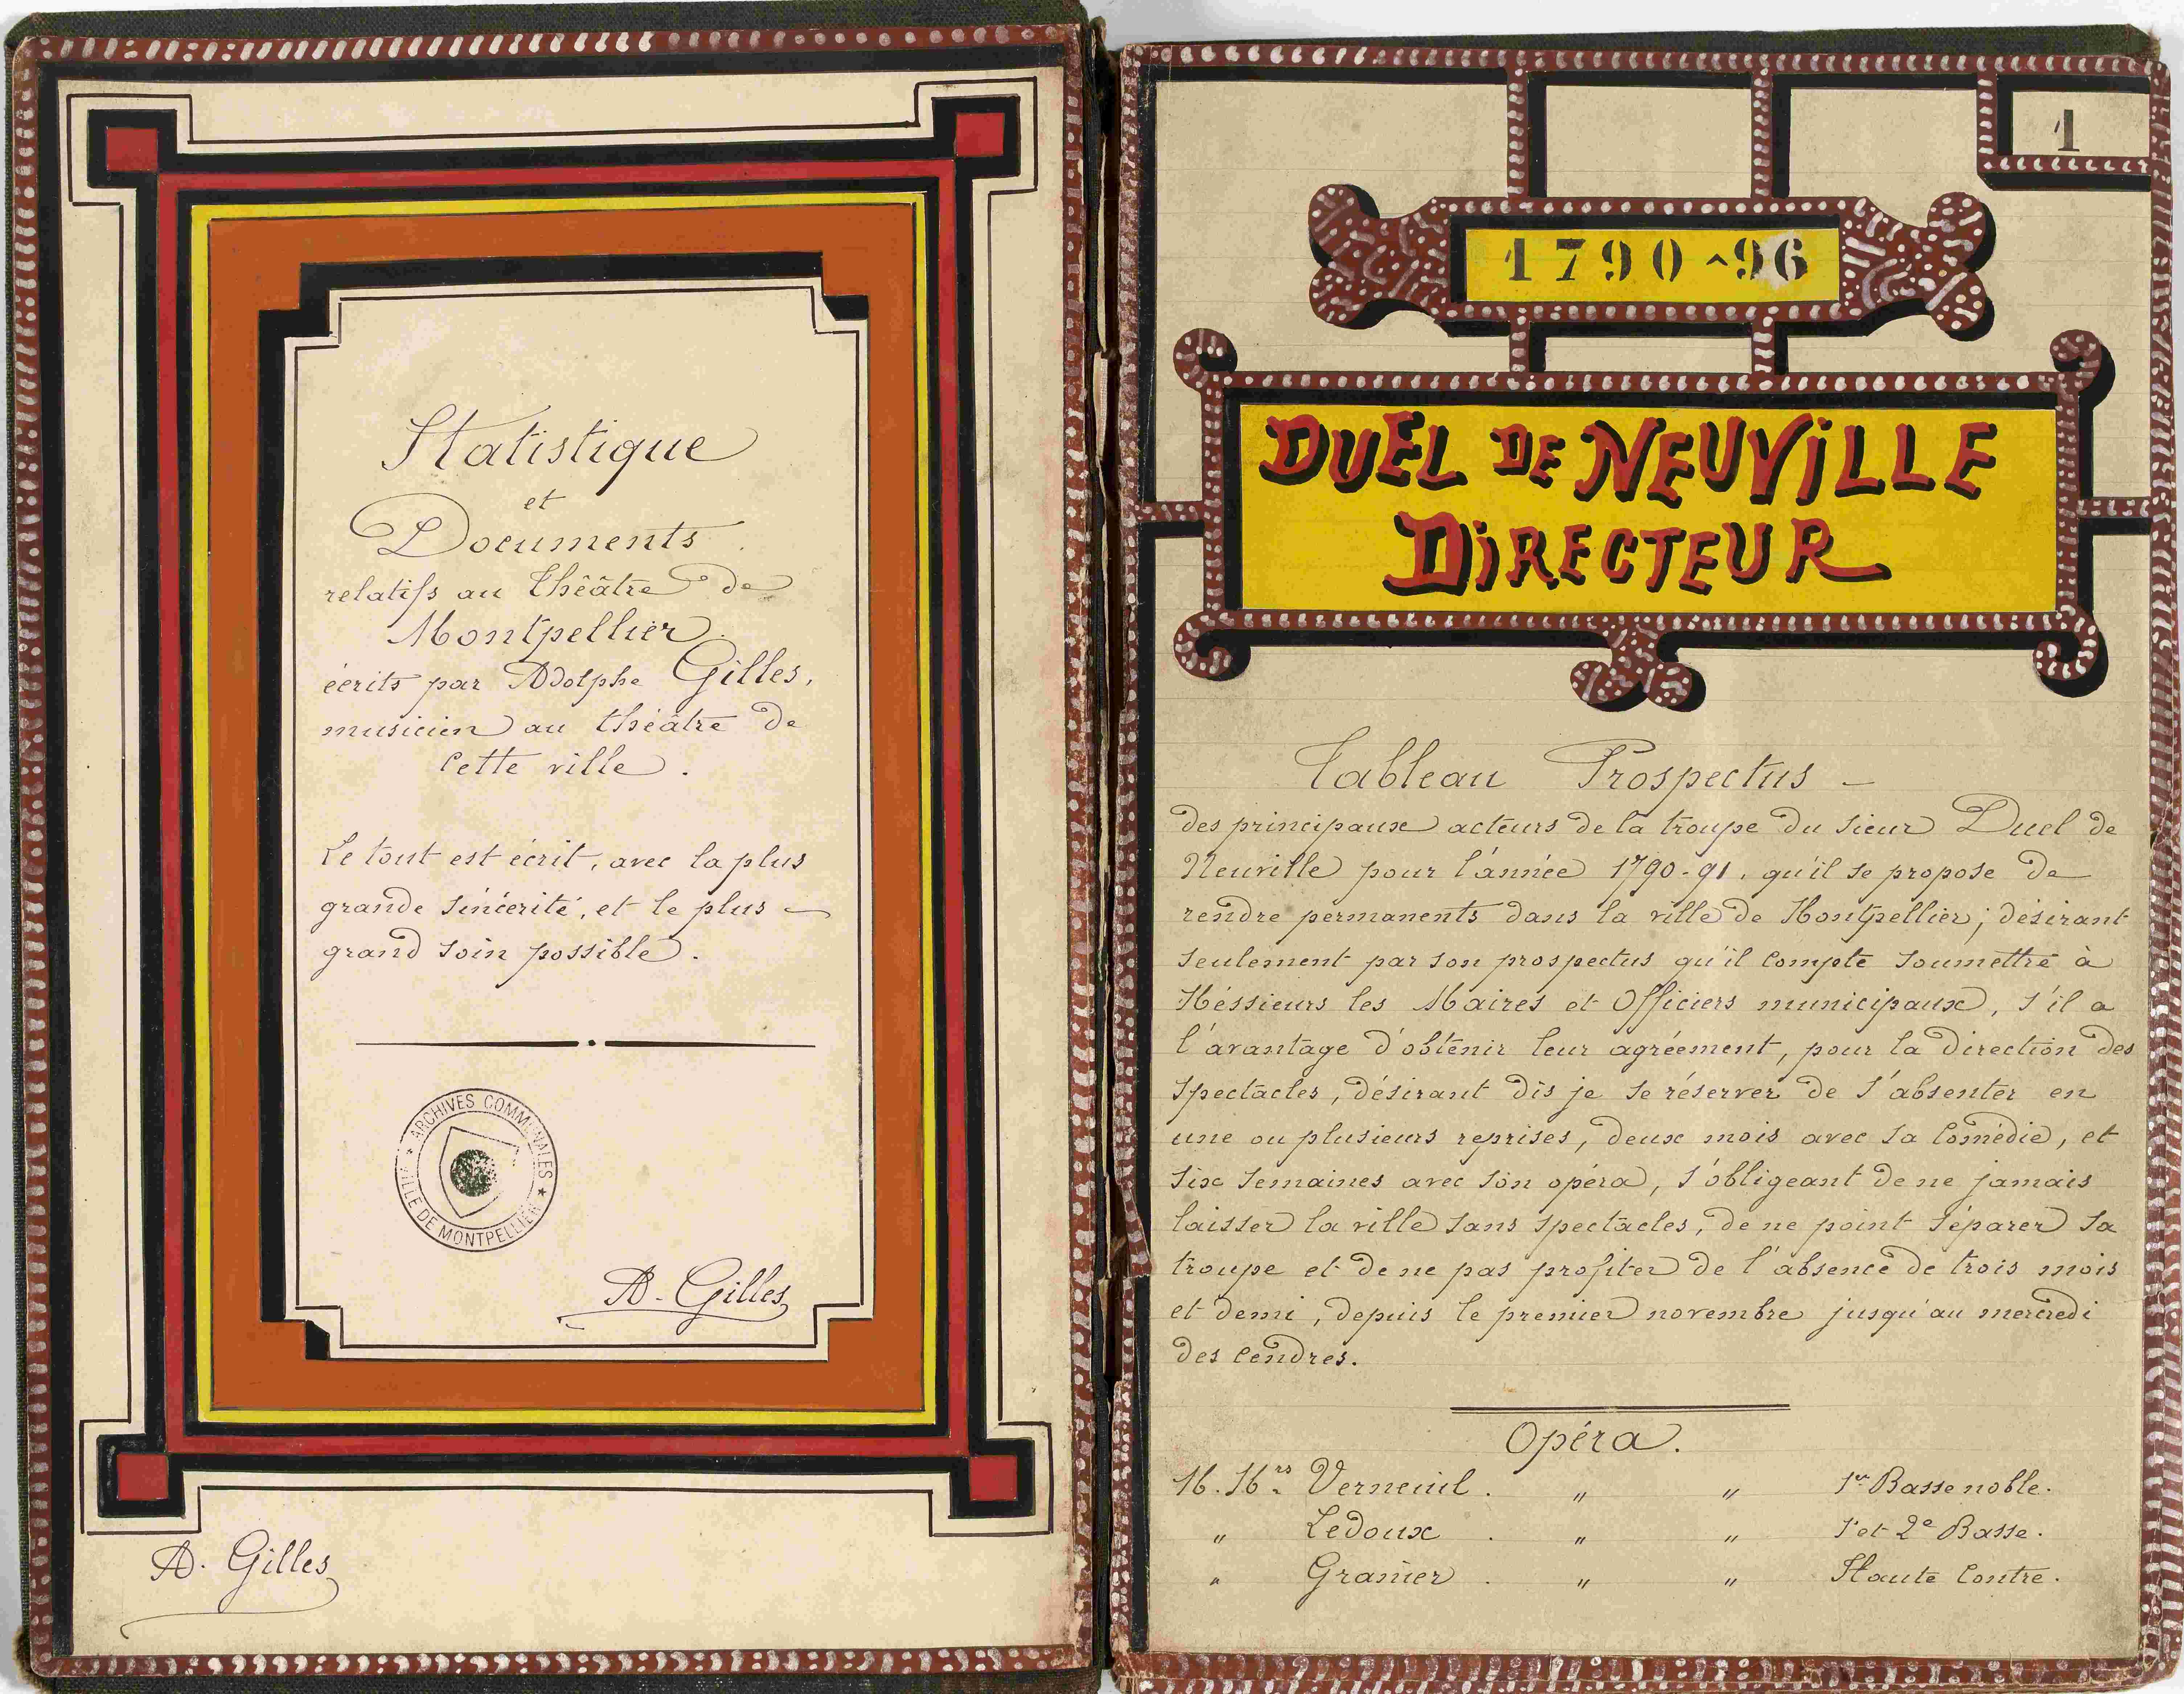 Statistique
et
Documents
relatifs au théâtre de
Montpellier.
écrits par Adolphe Gilles,
musicien au théâtre de
cette ville.
Le tout est écrit, avec la plus
grande sincérité, et le plus
grand soin possible.
ARCHIVES COMMUNALES
VILLE DE MONTPELLIER
A. Gilles
A. Gilles
1
1790-96
DUEL DE NEUVILLE
DIRECTEUR
Tableau Prospectus -
des principaux acteurs de la troupe du sieur Duel de
Neuville pour l'année 1790-91, qu'il se propose de
rendre permanents dans la ville de Montpellier; désirant
seulement par son prospectus qu'il compte soumettre à
Méssieurs les Maires et Officiers municipaux, s'il a
l'avantage d'obtenir leur agréement, pour la direction des
spectacles, désirant dis je se réserver de s'absenter en
une ou plusieurs reprises, deux mois avec sa comédie, et
six semaines avec son opéra, s'obligeant de ne jamais
laisser la ville sans spectacles, de ne point séparer sa
troupe et de ne pas profiter de l'absence de trois mois
et demi, depuis le premier novembre jusqu'au mercredi
des cendres.
Opéra.
M. Mrs Verneuil . " " 1re Basse noble.
" Ledoux . " " 1e et 2e Basse.
" Granier . " " Haute Contre.